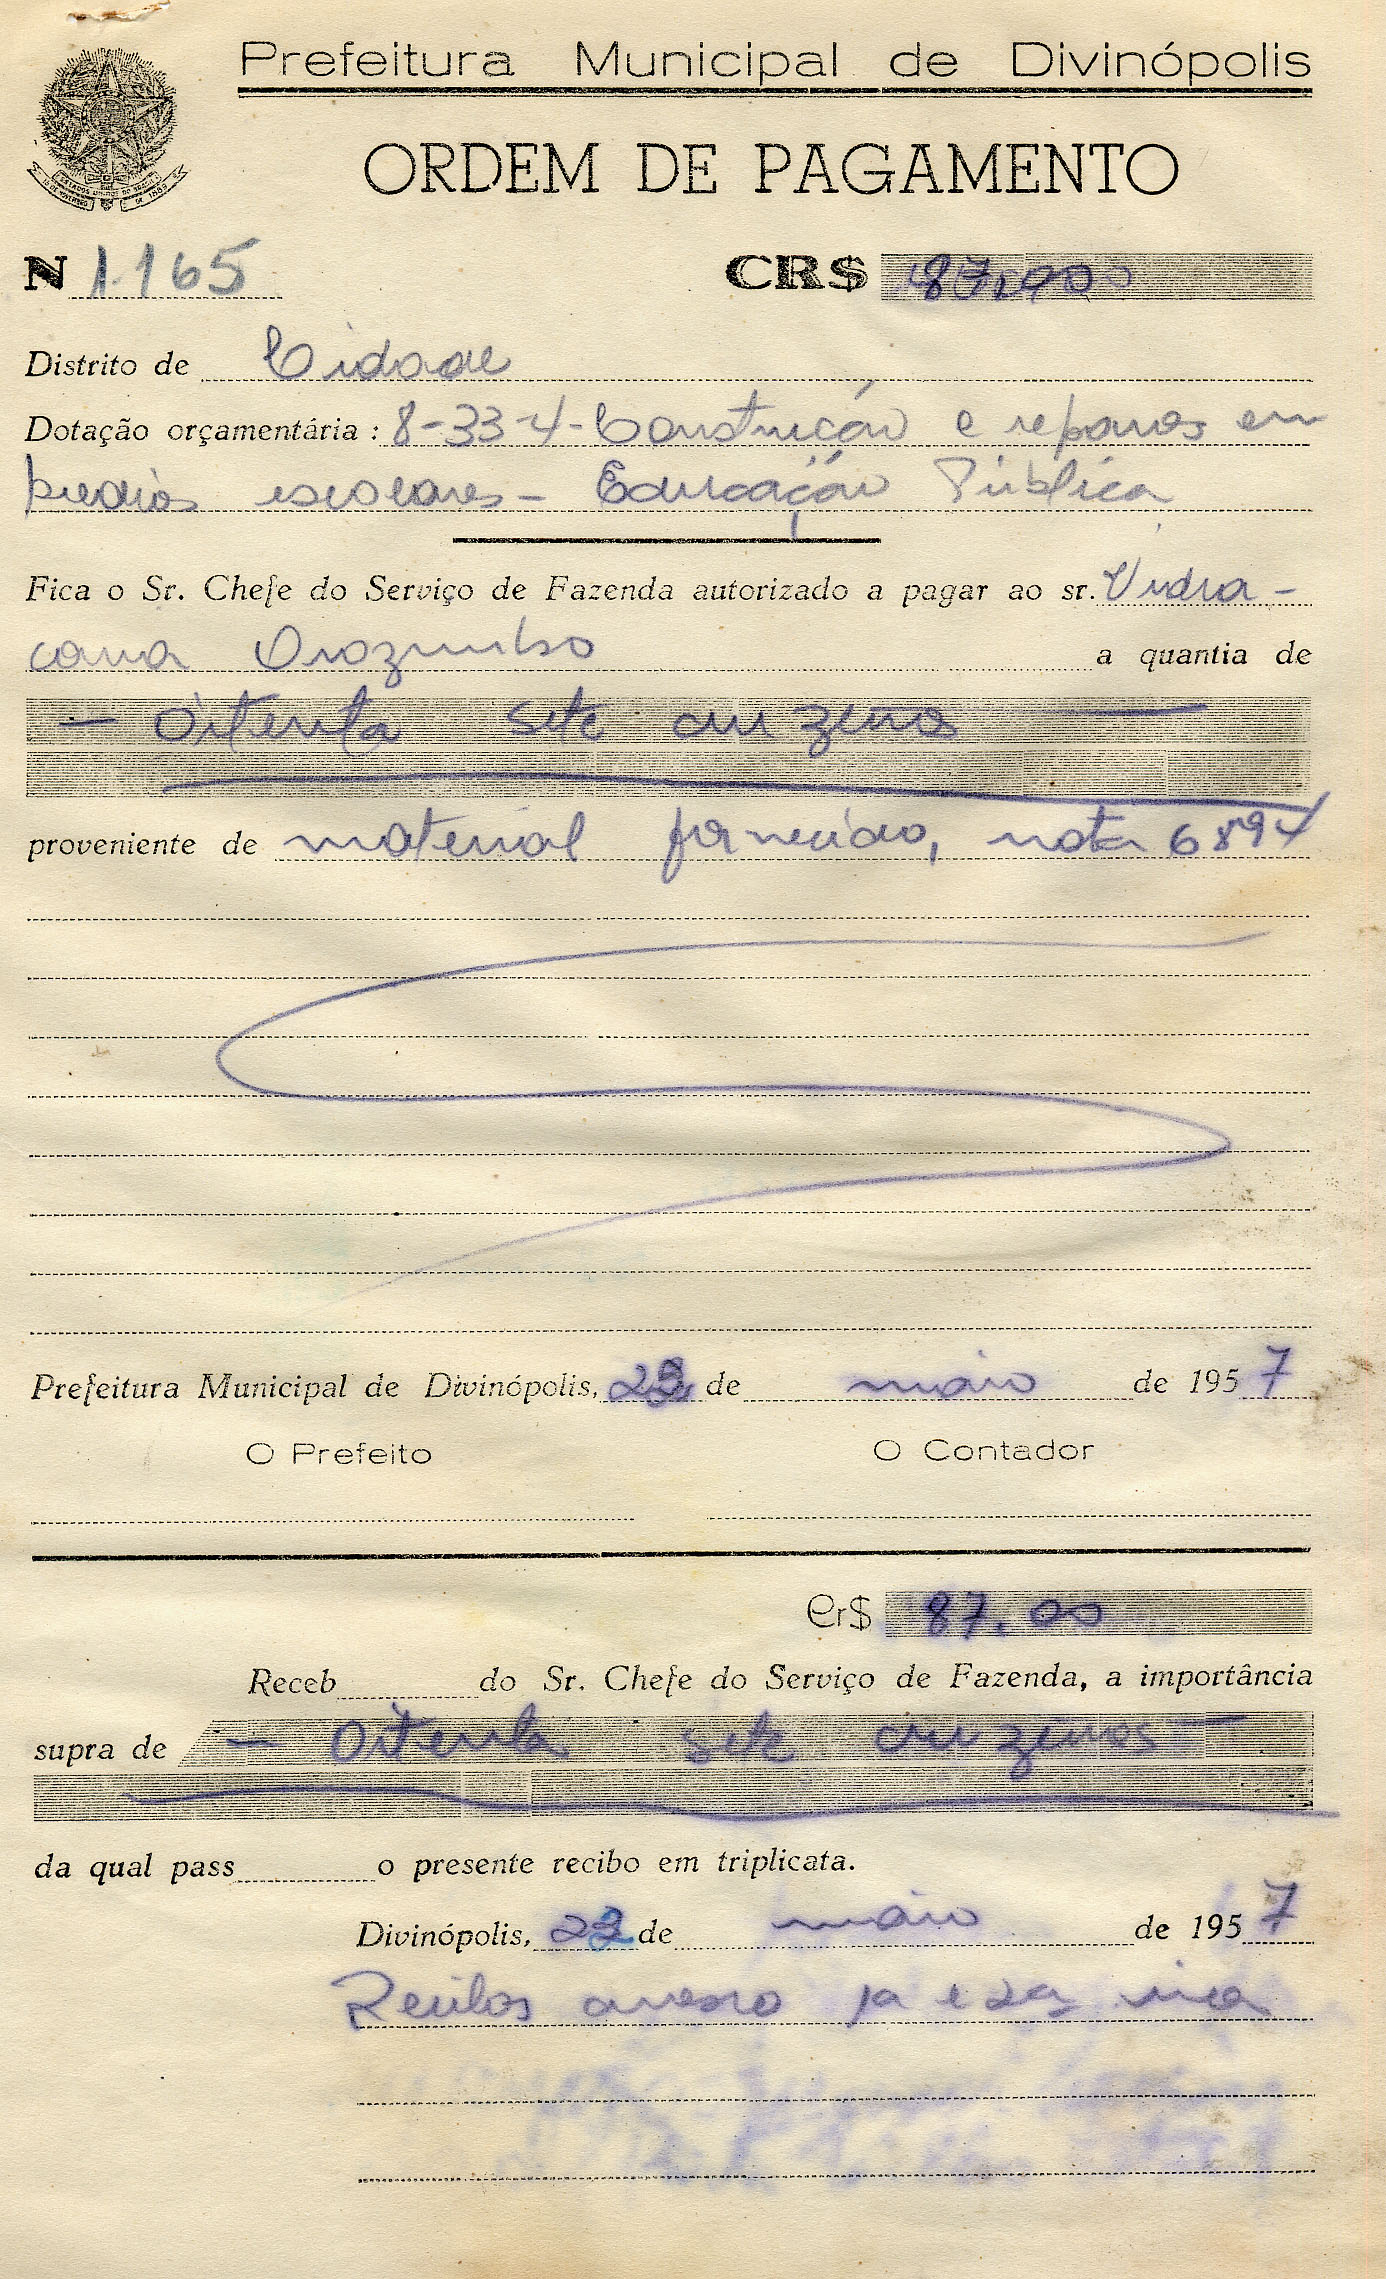 Prefeitura Municipal de Divinópolis
ORDEM DE PAGAMENTO
N 1.165 CR$ 87,00
Distrito de Cidade
Dotação orçamentária : 8-33-4-Construção e reparos em
predios escolares - Educação Pública
Fica o Sr. Chefe do Serviço de Fazenda autorizado a pagar ao sr. Vidra-
caria Orozimbo a quantia de
— Oitenta sete cruzeiros —
proveniente de material fornecido, nota 6894
Prefeitura Municipal de Divinópolis, de maio de 1957
O Prefeito O Contador
Cr$ 87,00
Receb do Sr. Chefe do Serviço de Fazenda, a importância
supra de — Oitenta sete cruzeiros —
da qual pass o presente recibo em triplicata.
Divinópolis, 22 de maio de 1957
Recibos anexo 1a e 2a via